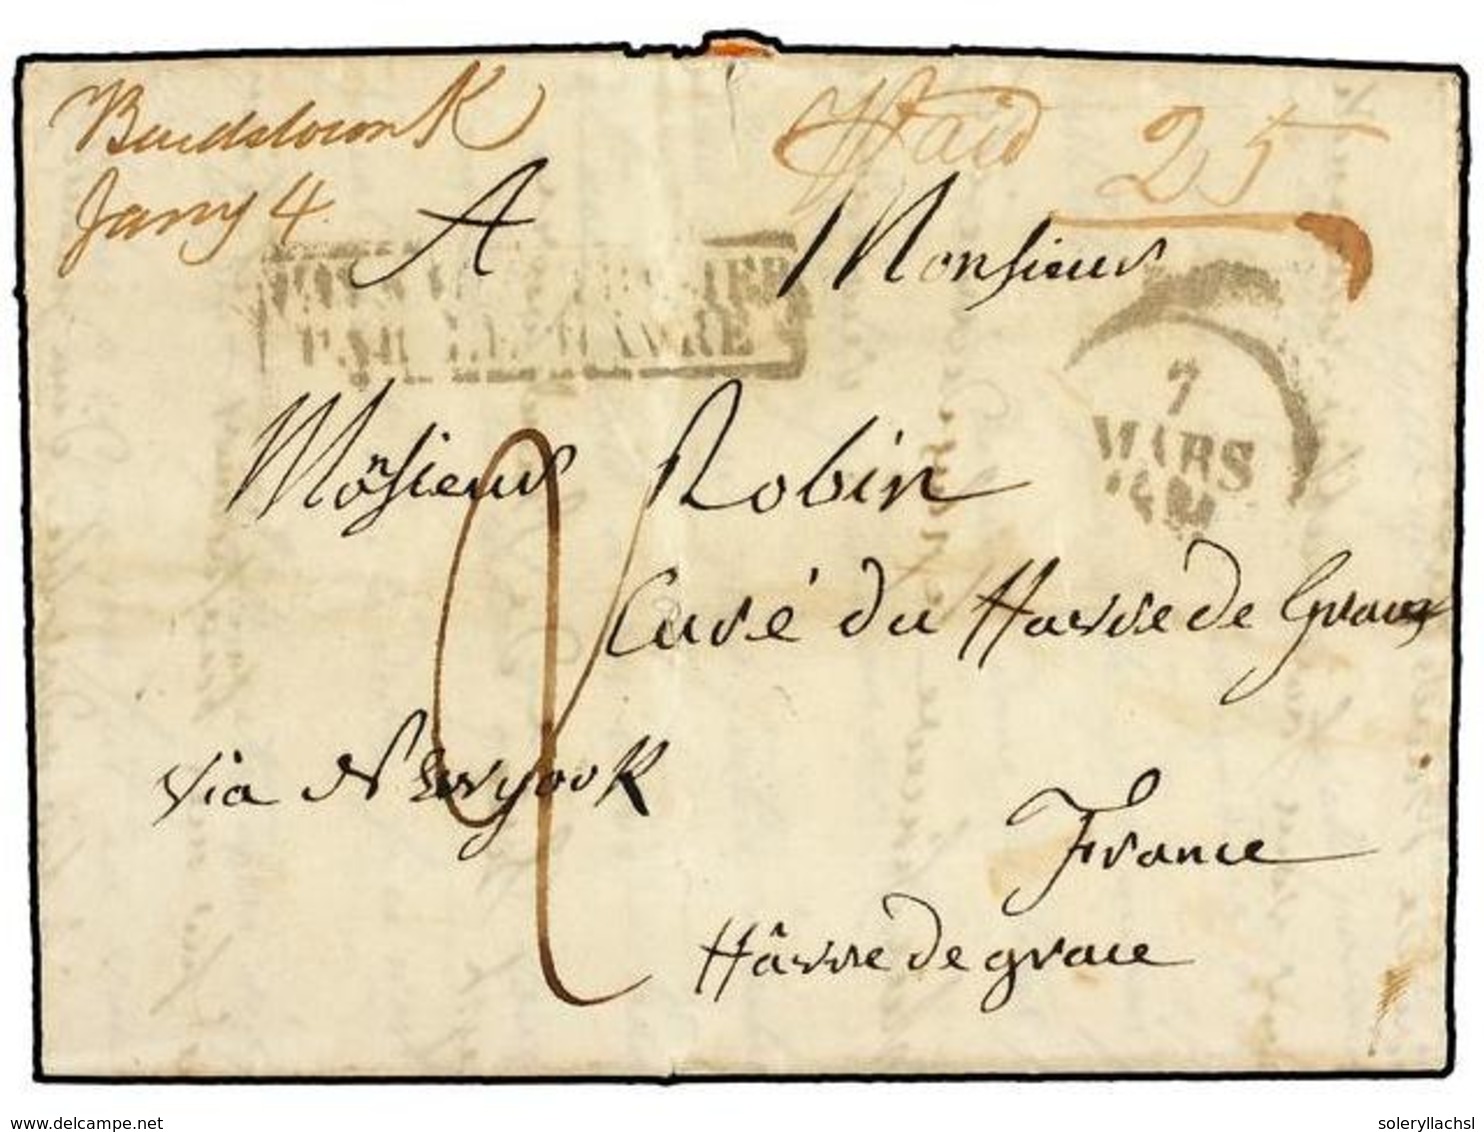 Beardstown K
Jany 4
Paid 25
A Monsieur
PAR LE HAVRE
7
MARS
Monsieur Robin
Curé du Havre de Grace
via Newyork
France
Hâvre de grace
www.delcampe.net
soleryllachsl